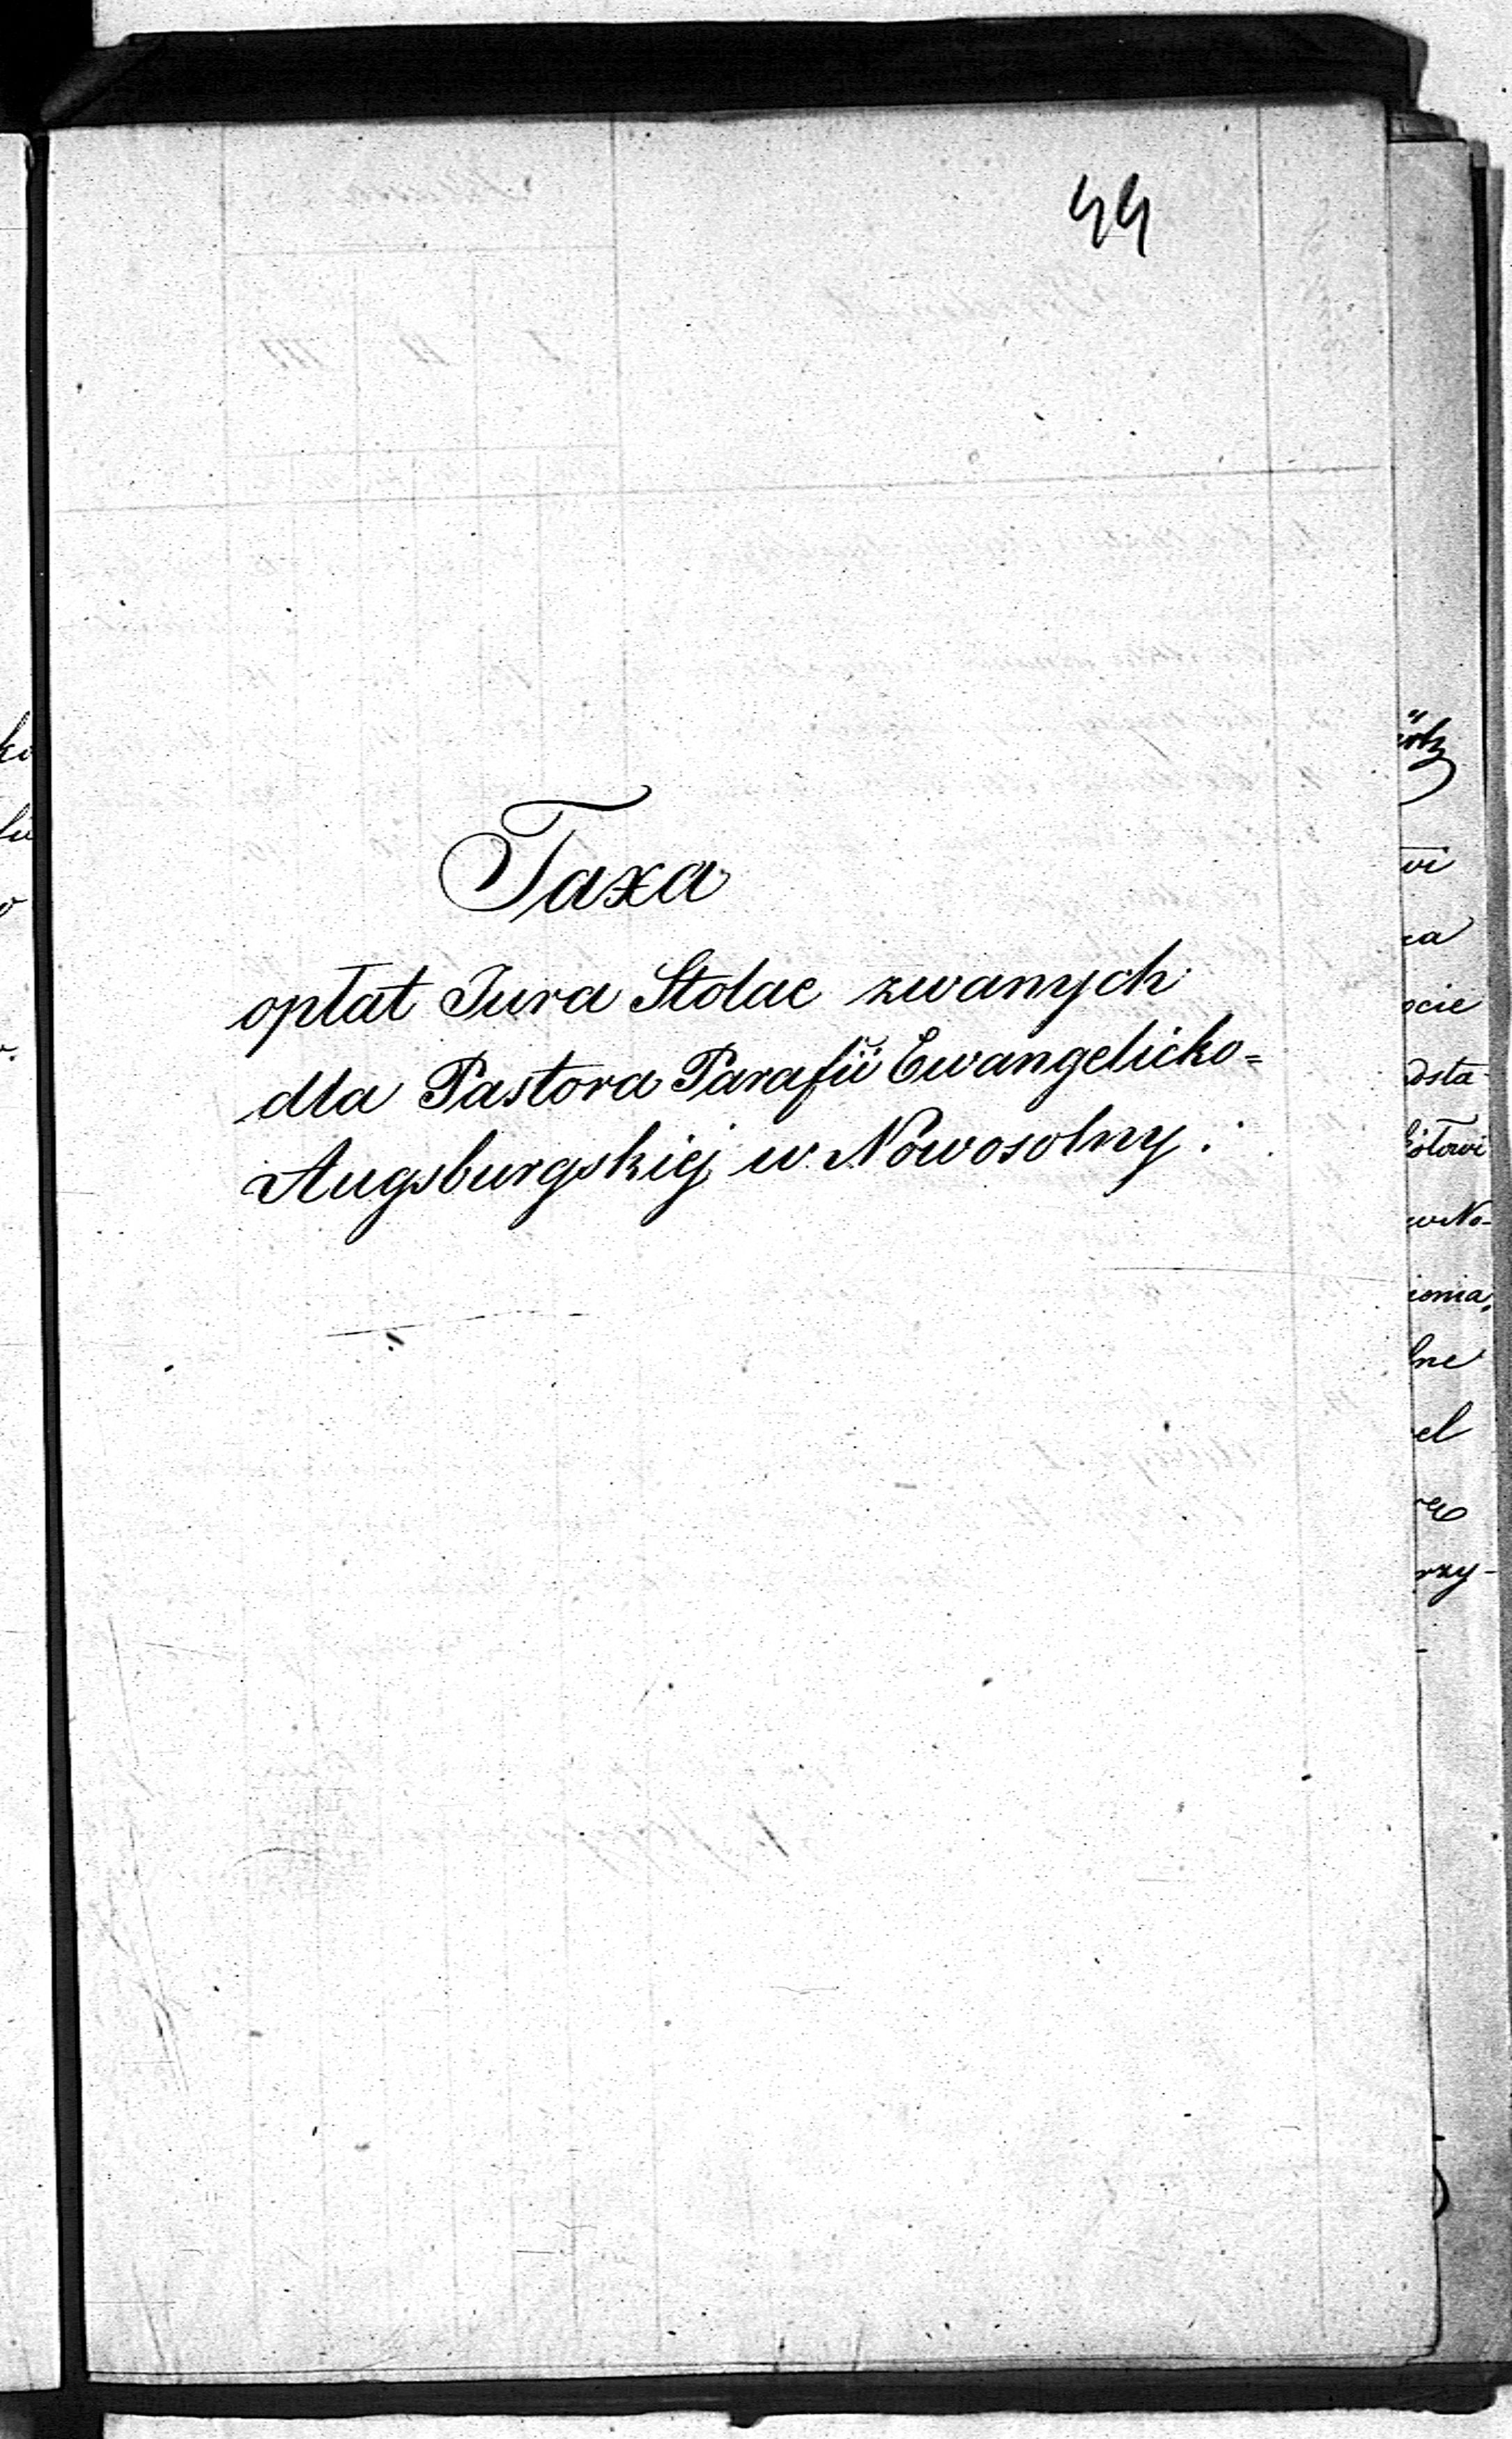 44
Taxa
opłat Jura Stolae zwanych
dla Pastora Parafii Ewangelicko=
Augsburgskiej w Nowosolny.